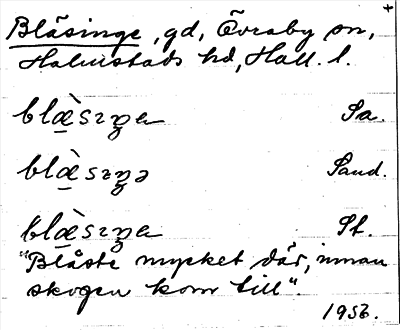 +
Bläsinge, gd, Övraby sn,
Halmstads hd, Hall. l.
blæ̀sɪŋa Sa.
blæ̀sɪŋə Sand.
blæ̀sɪŋa St.
"Blåste mycket där, innan
skogen kom till".
1956.